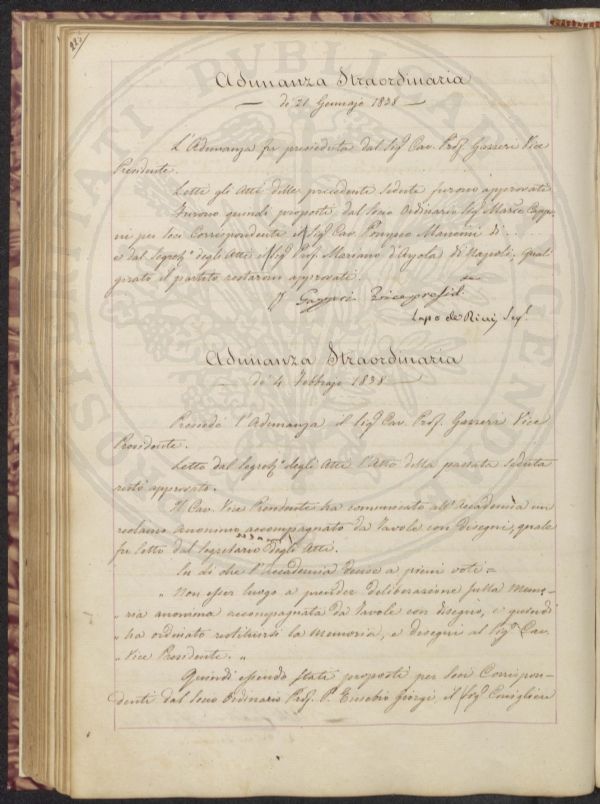 Adunanza Straordinaria
— de' 21. Gennajo 1838 —
L'Adunanza fu presieduta dal Sigr. Cav. Prof. Gazzeri Vice
Presidente.
Letti gli Atti della precedente seduta furono approvati.
Furono quindi proposti dal Socio Ordinario Sigr. Marco Cappo
ni per Soci Corrispondente il Sigr. Cav. Pompeo Mancini di . .
e dal Segreto. degli Atti il Sigr. Prof. Mariano d'Ayala di Napoli, qual
girato il partito restarono approvati.
G Gazzeri Vicepresid.
Lapo de Ricci Segr.
Adunanza Straordinaria
— de' 4. Febbrajo 1838 —
Presedè l'Adunanza il Sigr. Cav. Prof. Gazzeri Vice
Presidente.
Letto dal Segreto. degli Atti l'Atto della passata seduta
restò approvato.
Il Cav. Vice Presidente ha comunicato all'Accademia un
reclamo anonimo accompagnato da Tavole con disegni, quale
fu letto dal Segretario degli Atti.
In di che l'Accademia decise a pieni voti =
" Non esser luogo a prender deliberazione sulla Memo-
" ria anonima accompagnata da Tavole con disegno, e quindi
" ha ordinato restituirsi la Memoria, e disegni al Sigr. Cav.
" Vice Presidente. "
Quindi essendo stati proposti per Soci Corrispon-
denti dal Socio Ordinario Prof. P. Eusebio Giorgi, il Sigr. Consigliere